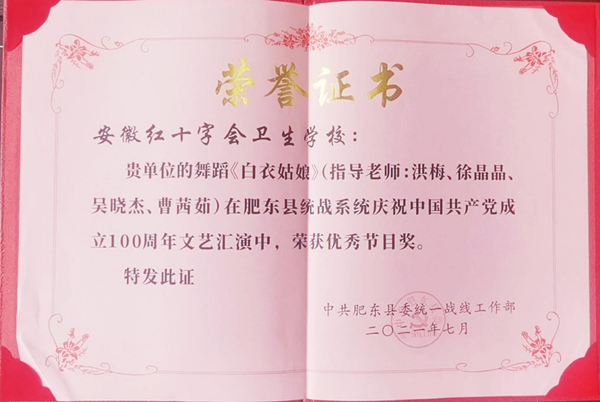 荣誉证书
安徽红十字会卫生学校：
贵单位的舞蹈《白衣姑娘》（指导老师：洪梅、徐晶晶、
吴晓杰、曹茜茹）在肥东县统战系统庆祝中国共产党成
立100周年文艺汇演中，荣获优秀节目奖。
特发此证
中共肥东县委统一战线工作部
二〇二一年七月